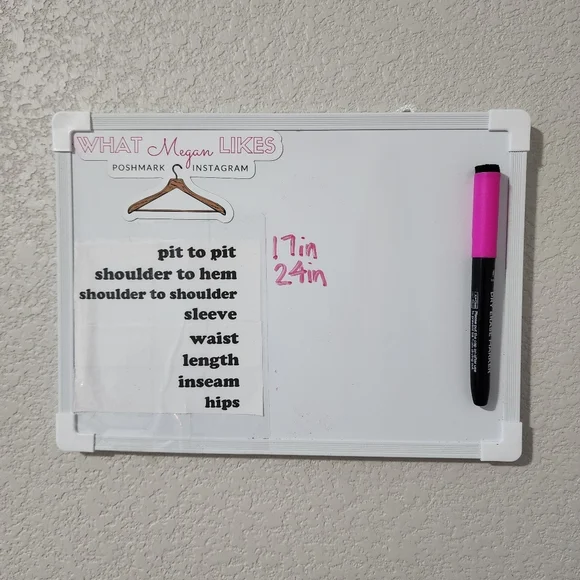 WHAT Megan LIKES
POSHMARK INSTAGRAM
pit to pit 17in
shoulder to hem 24in
shoulder to shoulder
sleeve
waist
length
inseam
hips